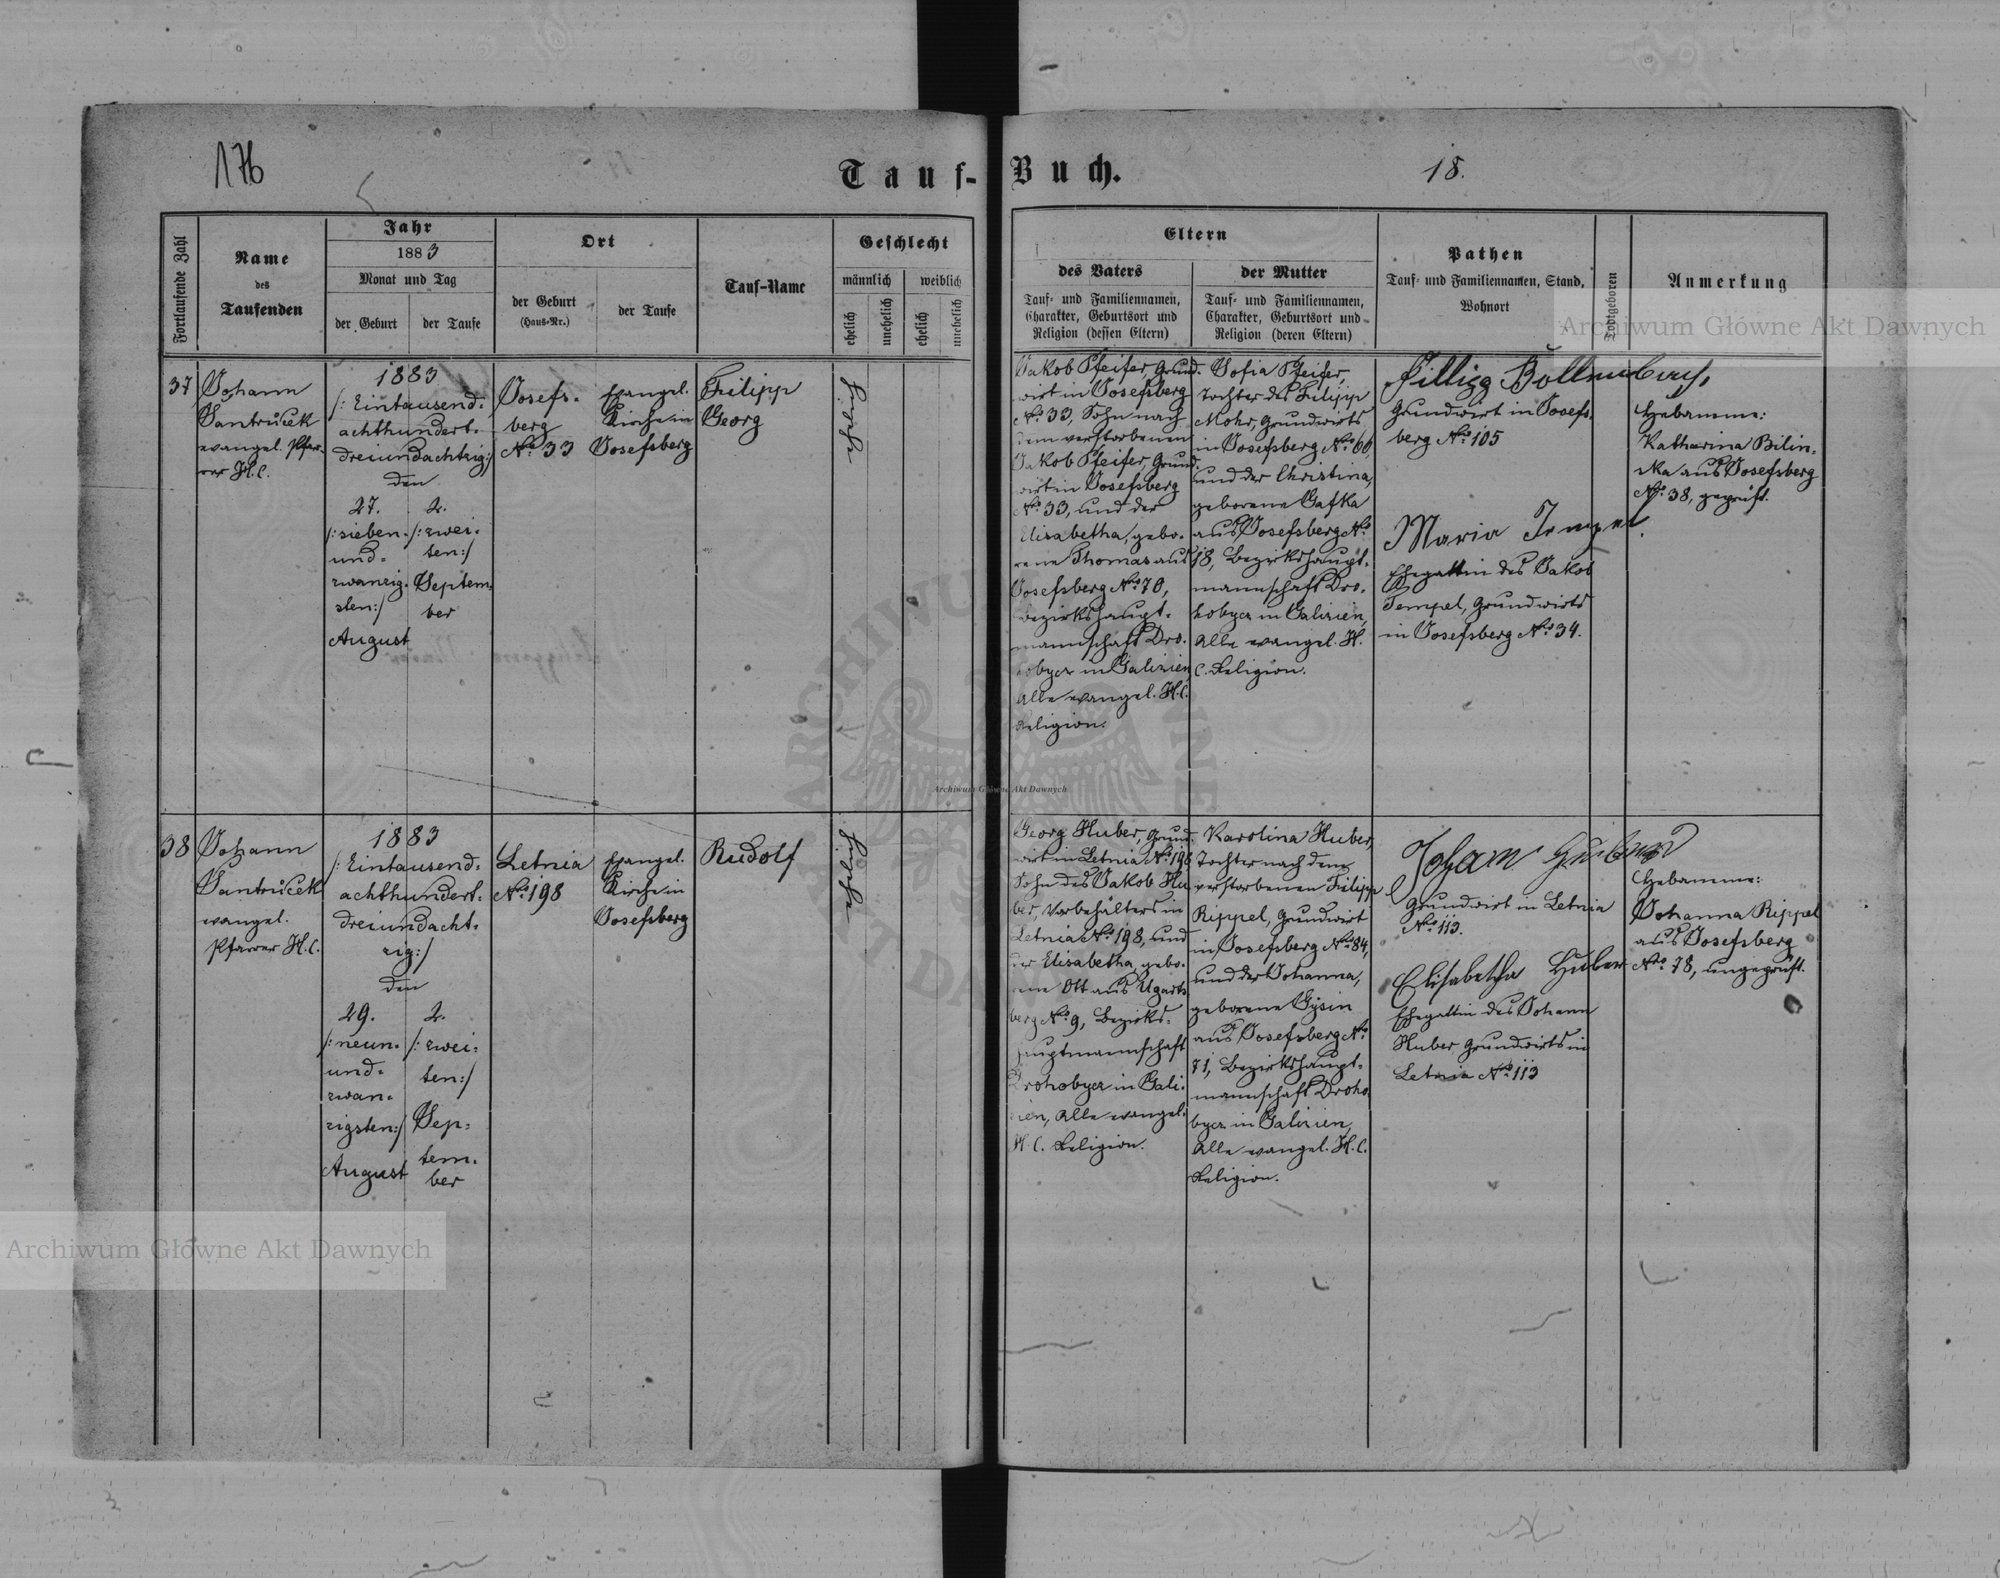 176
Tauf-Buch.
18.
Fortlaufende Zahl
Name
des
Taufenden
Jahr
1883
Monat und Tag
der Geburt
der Taufe
Ort
der Geburt
(Haus-Nr.)
der Taufe
Tauf-Name
Geschlecht
männlich
weiblich
ehelich
unehelich
ehelich
unehelich
Eltern
des Vaters
Tauf- und Familiennamen,
Charakter, Geburtsort und
Religion (dessen Eltern)
der Mutter
Tauf- und Familiennamen,
Charakter, Geburtsort und
Religion (deren Eltern)
Pathen
Tauf- und Familiennamen, Stand,
Wohnort
Todtgeboren
Anmerkung
37
Johann
Santruček
evangel. Pfar-
rer H.C.
1883
/: Eintausend-
achthundert-
dreiundachtzig:/
den
27.
/: sieben-
und-
zwanzig-
sten:/
August
2.
/: zwei-
ten:/
Septem-
ber
Josefs-
berg
No. 33
Evangel.
Kirche in
Josefsberg
Filipp
Georg
Jakob Pfeifer, Grund-
wirt in Josefsberg
No. 33, Sohn nach
dem verstorbenen
Jakob Pfeifer, Grund-
wirt in Josefsberg
No. 33, und der
Elisabetha, gebo-
rene Thomas aus
Josefsberg No. 70,
Bezirkshaupt-
mannschaft Dro-
hobycz in Galizien,
Alle evangel. H.C.
Religion.
Sofia Pfeifer,
Tochter des Filipp
Mohr, Grundwirts
in Josefsberg No. 66,
und der Christina,
geborene Gafka
aus Josefsberg No.
18, Bezirkshaupt-
mannschaft Dro-
hobycz in Galizien,
Alle evangel. H.
C. Religion.
Grundwirt in Josefs-
berg No. 105
Maria Tempel
Ehegattin des Jakob
Tempel, Grundwirts
in Josefsberg No. 34.
Hebamme:
Katharina Bilin-
ska aus Josefsberg
No. 38, geprüft.
38
Johann
Santruček
evangel.
Pfarrer H.C.
1883
/: Eintausend-
achthundert-
dreiundacht-
zig:/
den
29.
/: neun-
und-
zwan-
zigsten:/
August
2.
/: zwei-
ten:/
Sep-
tem-
ber
Letnia
No. 198
Evangel.
Kirche in
Josefsberg
Rudolf
Georg Huber, Grund-
wirt in Letnia No. 198
Sohn des Jakob Hu-
ber, Vorbehälters in
Letnia No. 198, und
der Elisabetha, gebo-
rene Ott aus Ugarts-
berg No. 9, Bezirks-
hauptmannschaft
Drohobycz in Gali-
zien, Alle evangel.
H.C. Religion.
Karolina Huber,
Tochter nach dem
verstorbenen Filipp
Rippel, Grundwirt
in Josefsberg No. 84,
und der Johanna,
geborene Gysin
aus Josefsberg No.
71, Bezirkshaupt-
mannschaft Droho-
bycz in Galizien,
Alle evangel. H.C.
Religion.
Johann
Grundwirt in Letnia
No. 113.
Elisabetha Huber
Ehegattin des Johann
Huber, Grundwirts in
Letnia No. 113
Hebamme:
Johanna Rippel
aus Josefsberg
No. 78, ungeprüft.
Archiwum Główne Akt Dawnych
Archiwum Główne Akt Dawnych
Archiwum Główne Akt Dawnych